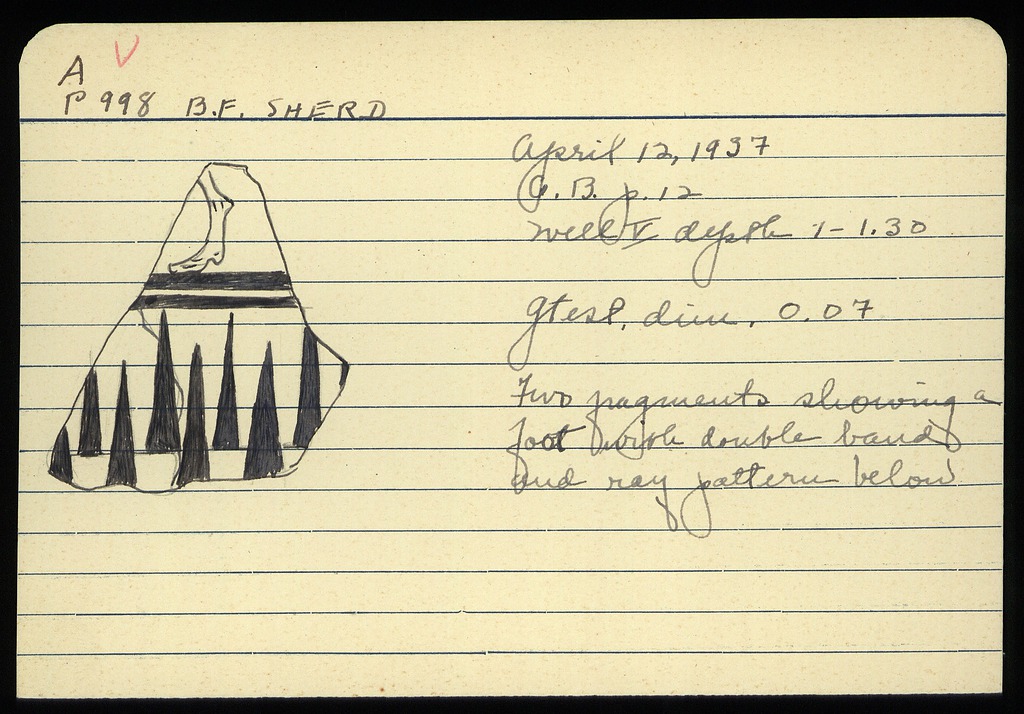 A V
P 998 B.F. SHERD
April 12, 1937
G.B. p. 12
Well V depth 1-1.30
gtest. dim. 0.07
Two fragments showing a
foot with double band
and ray pattern below